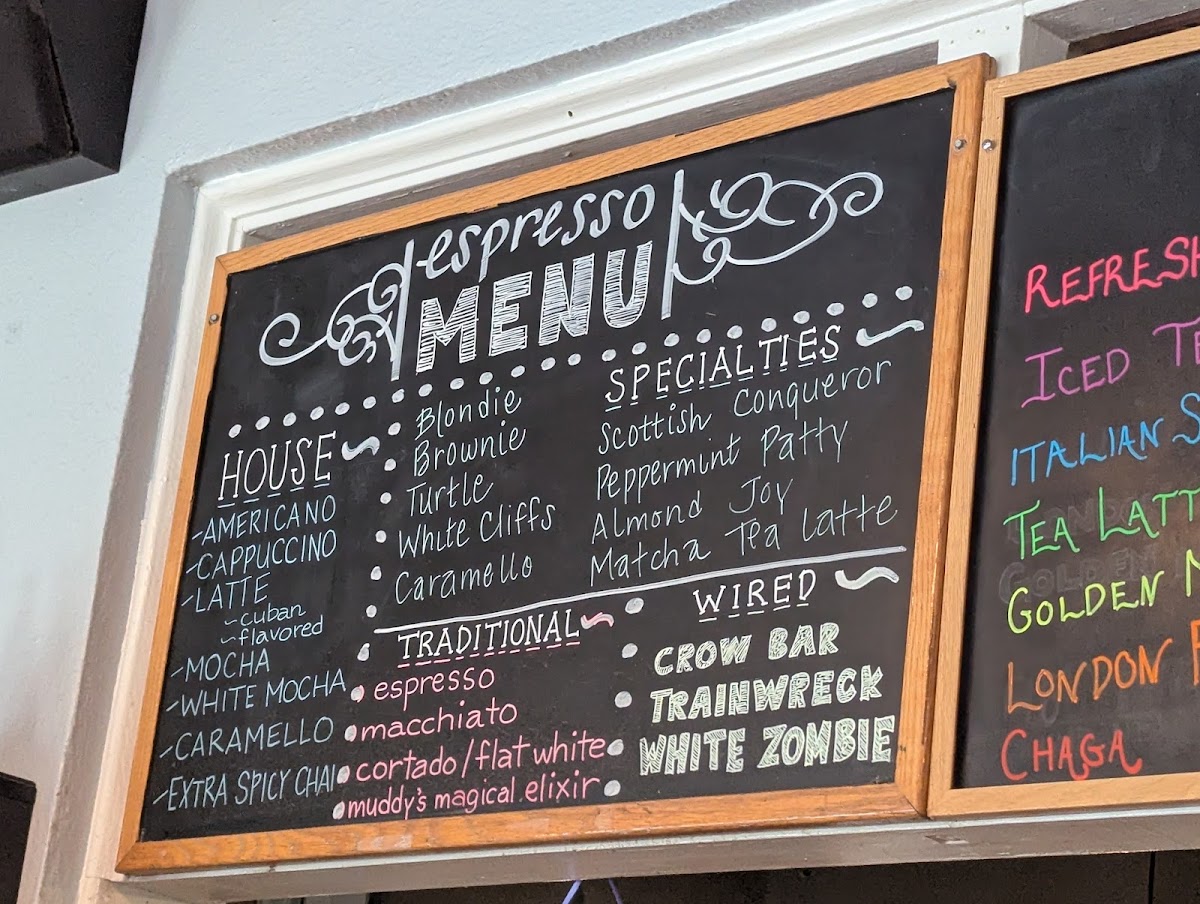 espresso
MENU
HOUSE
AMERICANO
CAPPUCCINO
LATTE
cuban
flavored
MOCHA
WHITE MOCHA
CARAMELLO
EXTRA SPICY CHAI
Blondie
Brownie
Turtle
White Cliffs
Caramello
SPECIALTIES
Scottish Conqueror
Peppermint Patty
Almond Joy
Matcha Tea Latte
TRADITIONAL
espresso
macchiato
cortado/flat white
muddy's magical elixir
WIRED
CROW BAR
TRAINWRECK
WHITE ZOMBIE
REFRESH
ICED
ITALIAN
TEA LATT
GOLDEN
LONDON
CHAGA